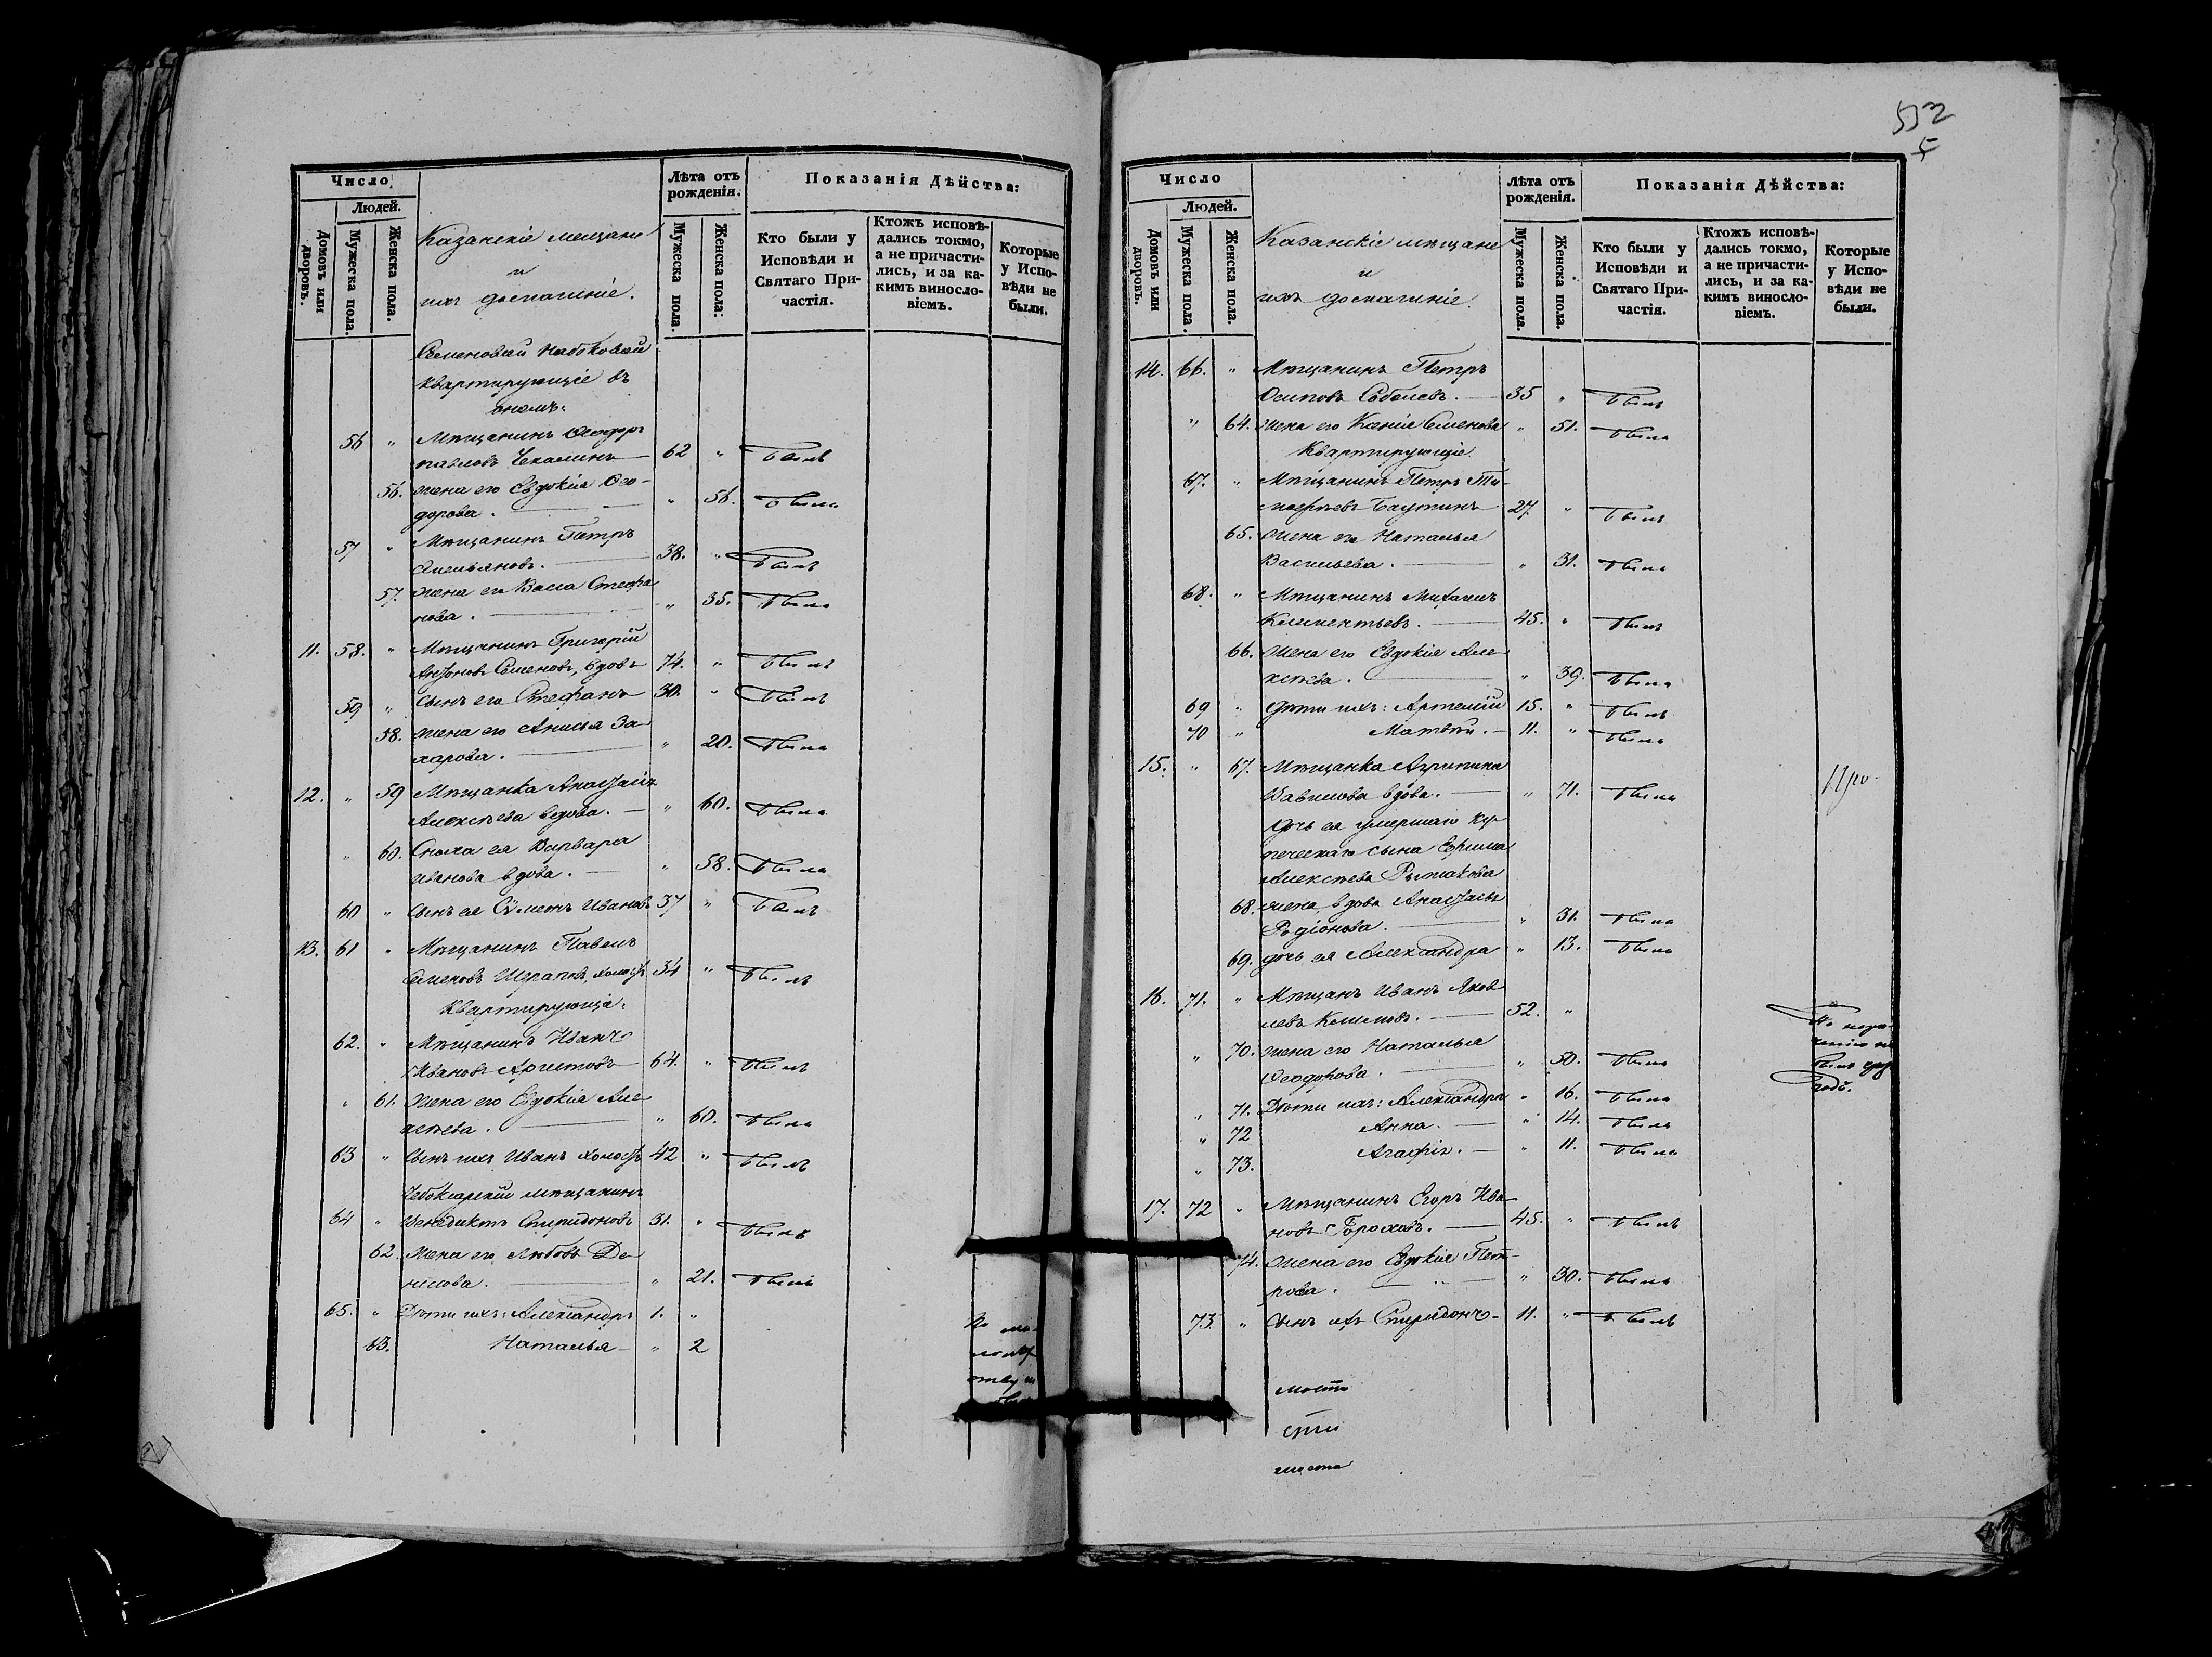 Число
Людей.
Домовъ или дворовъ.
Мужеска пола.
Женска пола.
Казанскіе мещане
и
ихъ домашніе.
Лѣта отъ рожденія.
Мужеска пола.
Женска пола.
Показанія Дѣйства:
Кто были у Исповѣди и Святаго Причастія.
Ктожъ исповѣдались токмо, а не причастились, и за какимъ винословіемъ.
Которые у Исповѣди не были.
квартирующіе въ
ономъ:
56 " Мѣщанинъ Ѳеодоръ
62 " былъ
56. жена его Евдокія Ѳео-
дорова. " 56. была
57 " Мѣщанинъ Петръ
Емельяновъ. 38. " былъ
57. жена его Васса Стефа
нова. " 35. была
11. 58. " Мѣщанинъ Григорій
Семеновъ, вдовъ 74. " былъ
59 " сынъ его Стефанъ 30. " былъ
58. жена его Анисья За-
харова. " 20. была
12. " 59 Мѣщанка Анастасія
Алексѣева вдова. " 60. была
" 60. Сноха ея Варвара
Иванова вдова. " 58. была
60 " Сынъ ея Сѷмеонъ Ивановъ 37 " былъ
13. 61 " Мѣщанинъ Павелъ
Семеновъ холостъ 34 " былъ
Квартирующіе:
62. " Мѣщанинъ Иванъ
Ивановъ Аристовъ 64. " былъ
" 61. Жена его Евдокія Але
ксѣева. " 60. была
63 " Сынъ ихъ Иванъ холостъ 42 " былъ
Чебоксарскій мѣщанинъ
64 " Венедиктъ Спиридоновъ 31. " былъ
62. Жена его Любовь Да-
нилова. " 21. была
65. " Дѣти ихъ: Александръ 1. "
63. Наталья " 2
По ма-
лолѣт

552
Число
Людей.
Домовъ или дворовъ.
Мужеска пола.
Женска пола.
Казанскіе мѣщане
и
ихъ домашніе.
Лѣта отъ рожденія.
Мужеска пола.
Женска пола.
Показанія Дѣйства:
Кто были у Исповѣди и Святаго Причастія.
Ктожъ исповѣдались токмо, а не причастились, и за какимъ винословіемъ.
Которые у Исповѣди не были.
14. 66. " Мѣщанинъ Петръ
Осиповъ Соболевъ. 35 " былъ
" 64. жена его Ксенія Семенова " 51. была
Квартирующіе.
67. " Мѣщанинъ Петръ Ти-
мофѣевъ 27. " былъ
65. жена его Наталья
Васильева. " 31. была
68. " Мѣщанинъ Михаилъ
Климентьевъ. 45. " былъ
66. жена его Евдокія Але-
ксѣева. " 39. была
69 " дѣти ихъ: Артемій 15. " былъ
70 " Матвѣй. 11. " былъ
15. " 67. Мѣщанка Агрипина
Вавилова вдова. " 71. была
дочь ея умершаго ку-
печескаго сына Ефима
Алексѣева
68. жена, вдова Анастасья
Родіонова. " 31. была
69. дочь ея Александра " 13. была
16. 71. " Мѣщанъ Иванъ Яков-
левъ 52. "
" 70. жена его Наталья
Ѳеодорова. " 50. была
" 71. Дѣти ихъ: Александра " 16. была
" 72 Анна. " 14. была
" 73. Агафія. " 11. была
17. 72 " Мѣщанинъ Егоръ Ива-
новъ Гороховъ. 45. " былъ
74. Жена его Евдокія Пет-
рова. " 30. была
73. " Сынъ ихъ Спиридонъ 11. " былъ